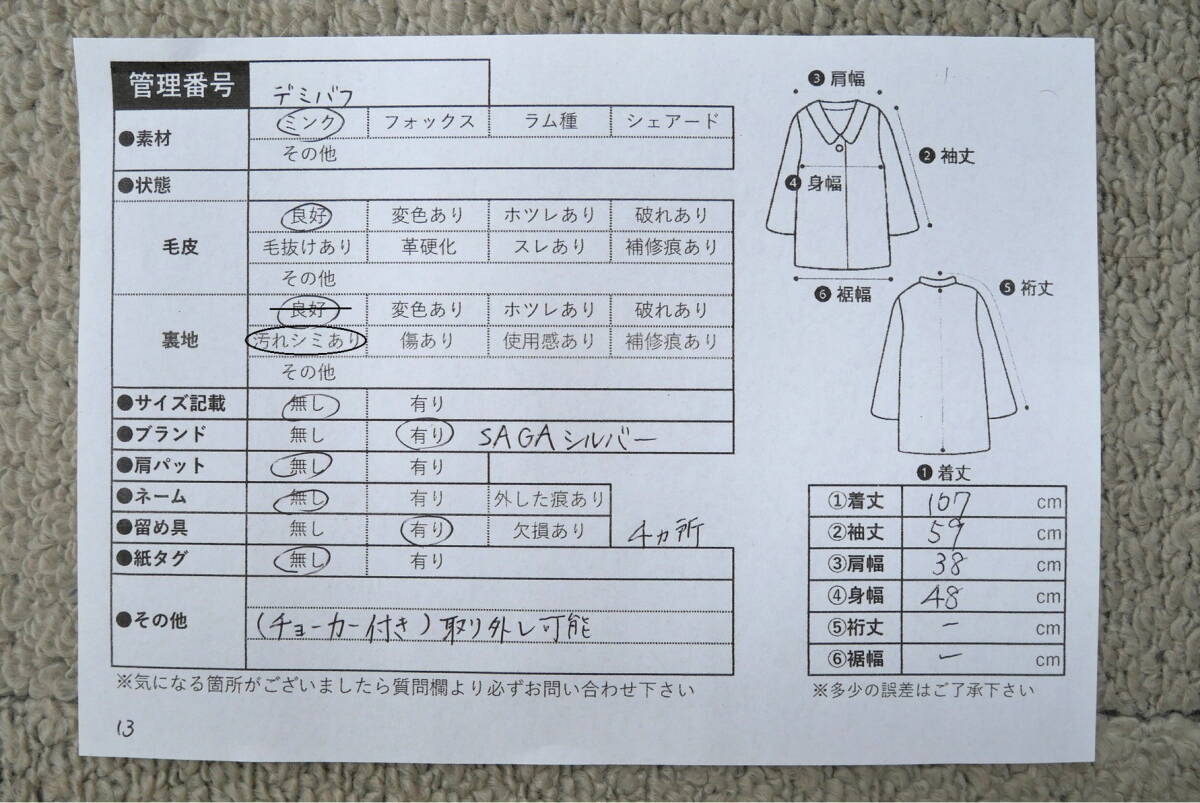 管理番号 デミバフ
●素材 ミンク フォックス ラム種 シェアード
その他
●状態
毛皮 良好 変色あり ホツレあり 破れあり
毛抜けあり 革硬化 スレあり 補修痕あり
その他
裏地 良好 変色あり ホツレあり 破れあり
汚れシミあり 傷あり 使用感あり 補修痕あり
その他
●サイズ記載 無し 有り
●ブランド 無し 有り SAGAシルバー
●肩パット 無し 有り
●ネーム 無し 有り 外した痕あり
●留め具 無し 有り 欠損あり 4ヵ所
●紙タグ 無し 有り
●その他 (チョーカー付き)取り外し可能
※気になる箇所がございましたら質問欄より必ずお問い合わせ下さい
13
❸肩幅
❷袖丈
❹身幅
❻裾幅
❺裄丈
❶着丈
①着丈 107 cm
②袖丈 59 cm
③肩幅 38 cm
④身幅 48 cm
⑤裄丈 - cm
⑥裾幅 - cm
※多少の誤差はご了承下さい